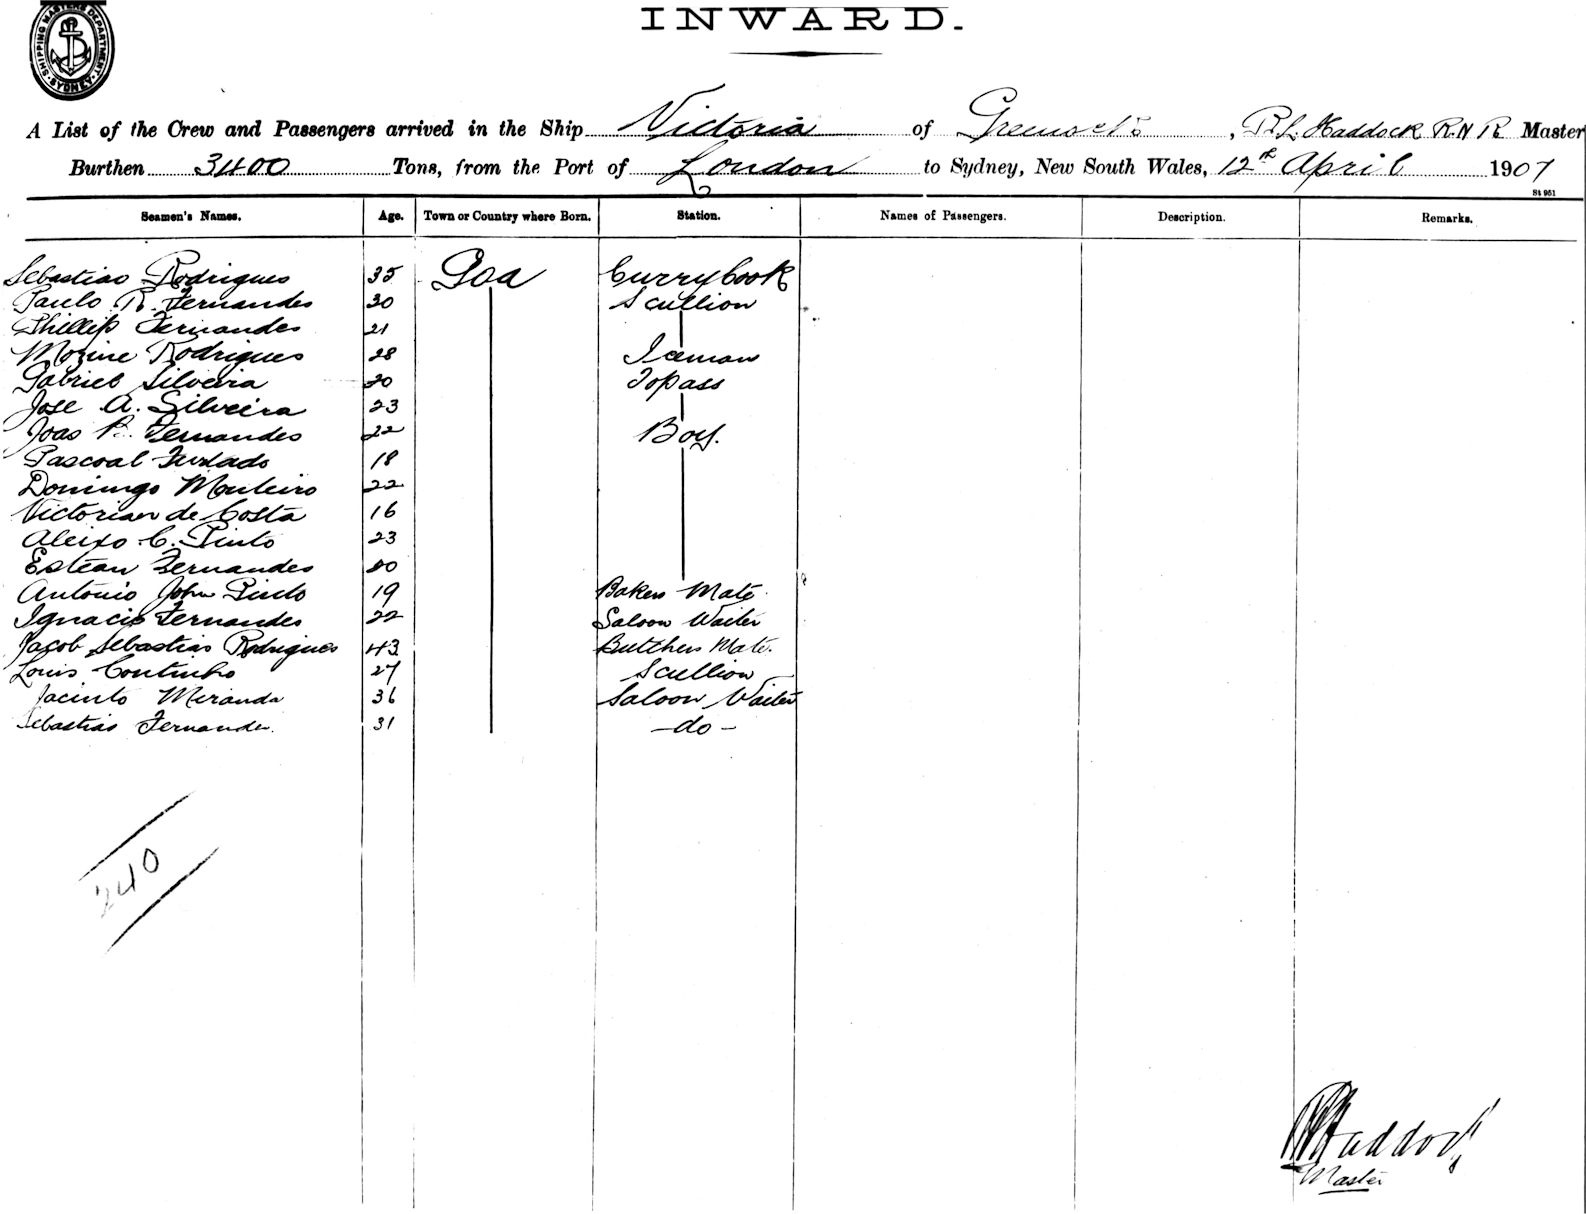 SHIPPING MASTERS DEPARTMENT. SYDNEY
INWARD.
A List of the Crew and Passengers arrived in the Ship Victoria of Greenock, R.L. Haddock R.N.R. Master
Burthen 3400 Tons, from the Port of London to Sydney, New South Wales, 12th April 1907
St 951
Seamen's Names. Age. Town or Country where Born. Station. Names of Passengers. Description. Remarks.
Sebastiao Rodrigues 35 Goa Curry Cook
Paulo R. Fernandes 30 Scullion
Phillip Fernandes 21
Rodrigues 28 Iceman
Gabriel Silveira 20 Topass
Jose A. Silveira 23
Joao P. Fernandes 22 Boy.
Pascoal Furtado 18
Domingo Monteiro 22
Victorian de Costa 16
Aleixo C. Pinto 23
Estean Fernandes 20
Antonio John Pinto 19 Bakers Mate
Ignacio Fernandes 22 Saloon Waiter
Jacob Sebastiao Rodrigues 43 Butchers Mate.
Louis Coutinho 27 Scullion
Jacinto Miranda 36 Saloon Waiter
Sebastiao Fernandes. 31 -do-
240
Haddock
Master